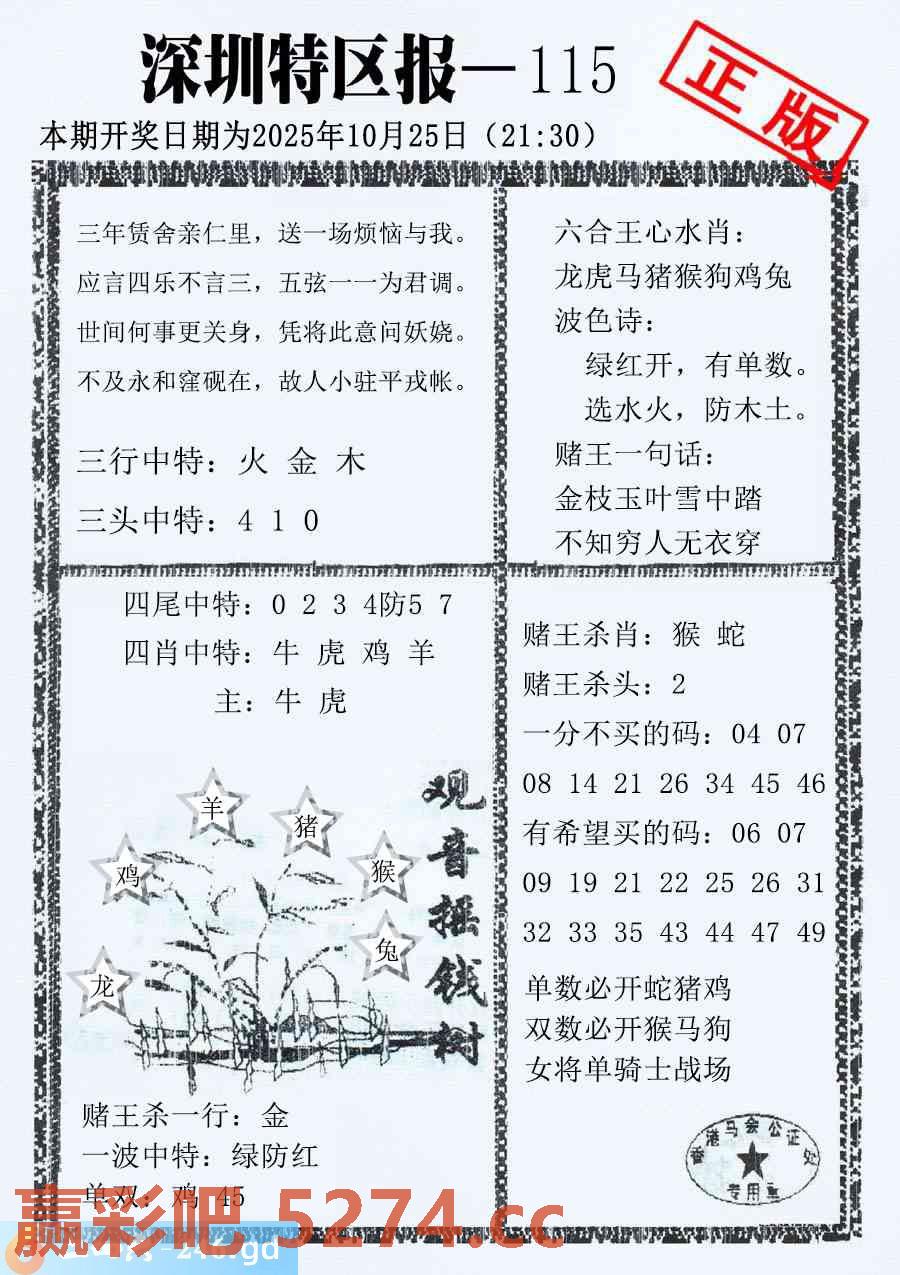 深圳特区报—115
正版
本期开奖日期为2025年10月25日（21:30）
三年赁舍亲仁里，送一场烦恼与我。
应言四乐不言三，五弦一一为君调。
世间何事更关身，凭将此意问妖娆。
不及永和窪砚在，故人小驻平戎帐。
三行中特：火 金 木
三头中特：4 1 0
六合王心水肖：
龙虎马猪猴狗鸡兔
波色诗：
绿红开，有单数。
选水火，防木土。
赌王一句话：
金枝玉叶雪中踏
不知穷人无衣穿
四尾中特：0 2 3 4防5 7
四肖中特：牛 虎 鸡 羊
主：牛 虎
观音摇钱树
羊
猪
鸡
猴
兔
龙
赌王杀一行：金
一波中特：绿防红
单双：鸡 45
赌王杀肖：猴 蛇
赌王杀头：2
一分不买的码：04 07
08 14 21 26 34 45 46
有希望买的码：06 07
09 19 21 22 25 26 31
32 33 35 43 44 47 49
单数必开蛇猪鸡
双数必开猴马狗
女将单骑士战场
香港马会公证处
专用章
赢彩吧 5274.cc